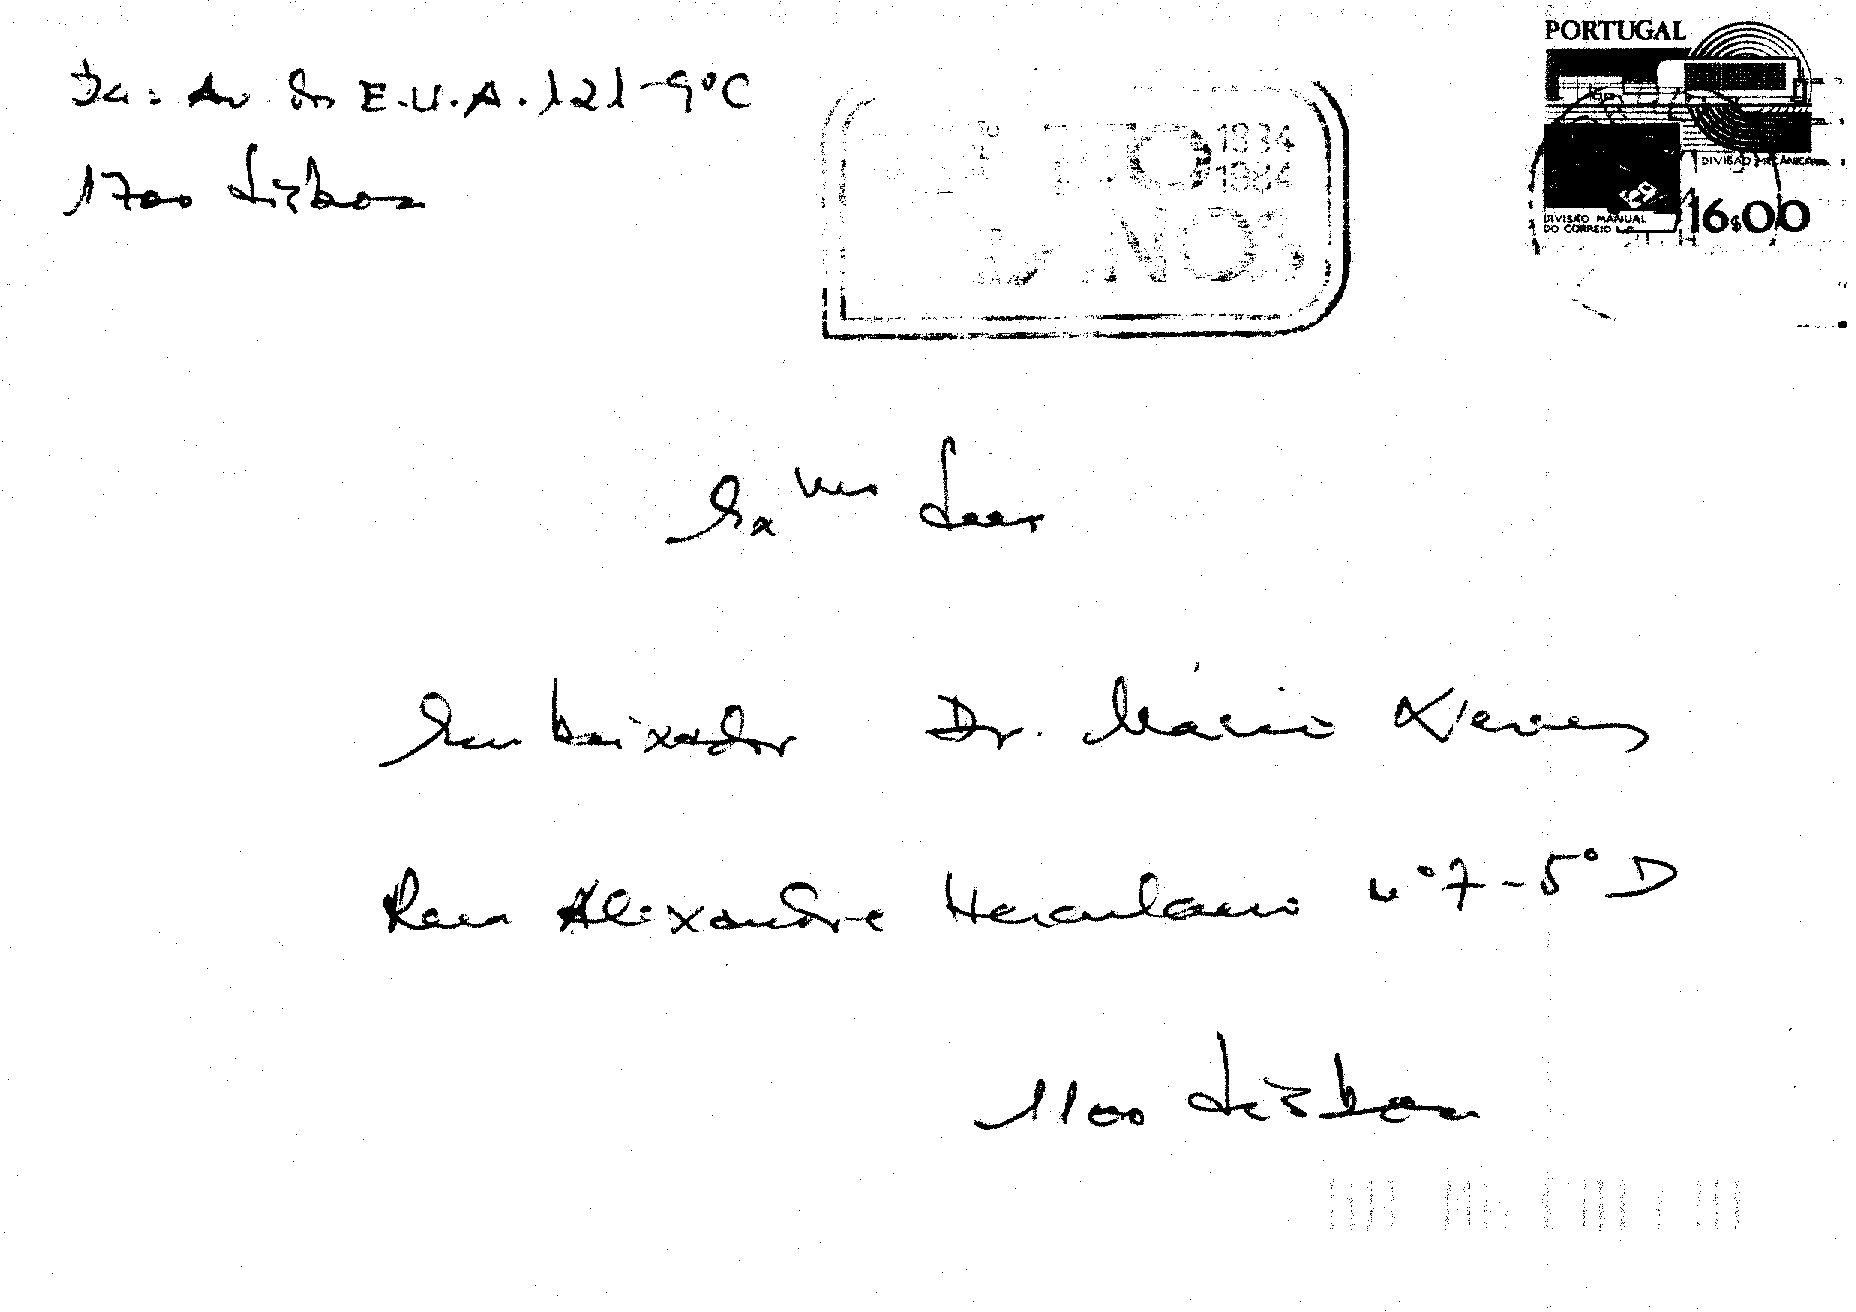 Da: Av dos E.U.A. 121-9ºC
1700 Lisboa
1934
1984
PORTUGAL
DIVISÃO MECÂNICA
DIVISÃO MANUAL
DO CORREIO
16$00
Exmo Senr
Embaixador Dr. Mário Neves
Rua Alexandre Herculano nº 7-5º D
1100 Lisboa